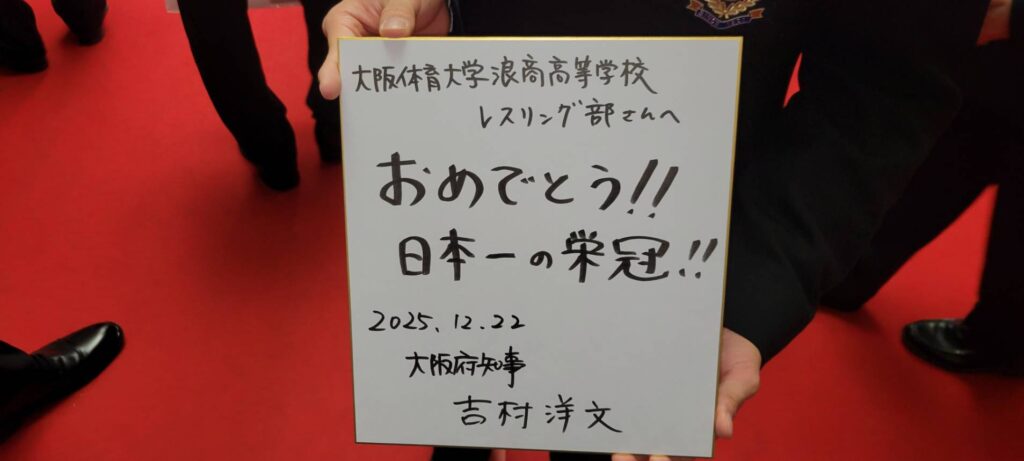 大阪体育大学浪商高等学校
レスリング部さんへ
おめでとう!!
日本一の栄冠!!
2025.12.22
大阪府知事
吉村洋文